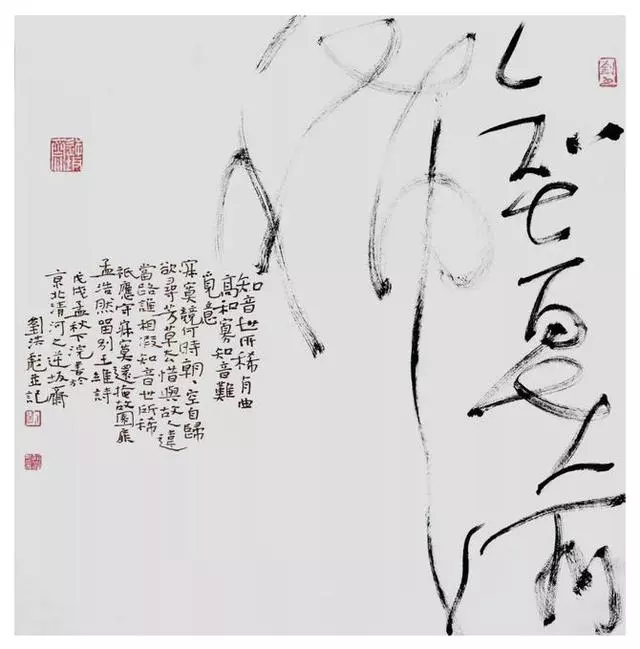 知音世所
稀
知音世所稀有曲
高和寡知音難
覓意
寂寞竟何待朝〻空自歸
欲尋芳草去惜與故人違
當路誰相假知音世所稀
祇應守寂寞還掩故園扉
孟浩然留別王維詩
戊戌孟秋下浣書於
京北清河之逆坂齋
劉洪彪並記